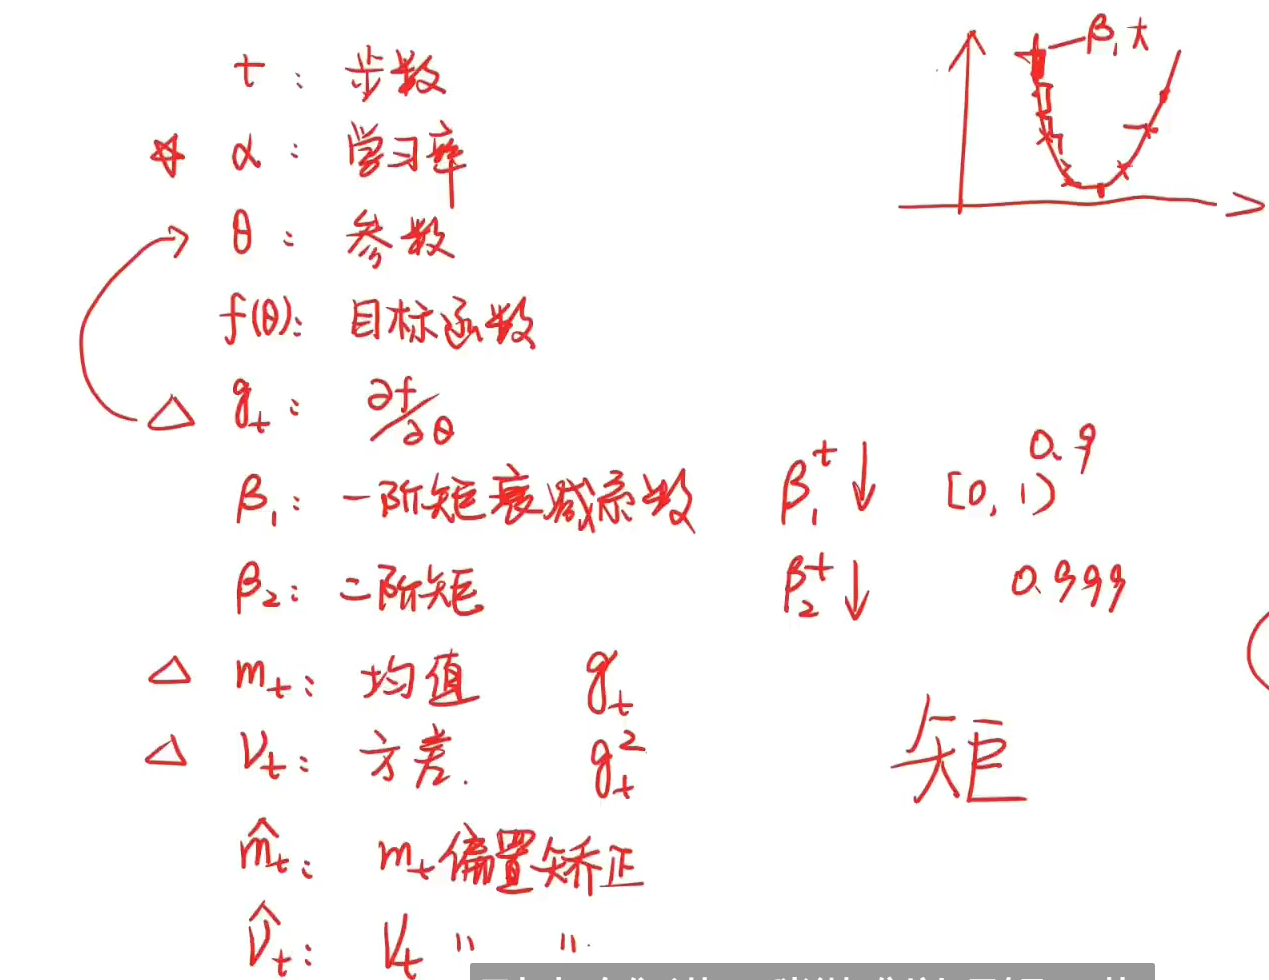 β₁大
t: 步数
α: 学习率
θ: 参数
f(θ): 目标函数
g_t: ∂f/∂θ
0.9
β₁: 一阶矩衰减系数 β₁^t↓ [0, 1)
β₂: 二阶矩 β₂^t↓ 0.999
m_t: 均值 g_t
V_t: 方差. g_t²
矩
m̂_t: m_t偏置矫正
V̂_t: V_t " "